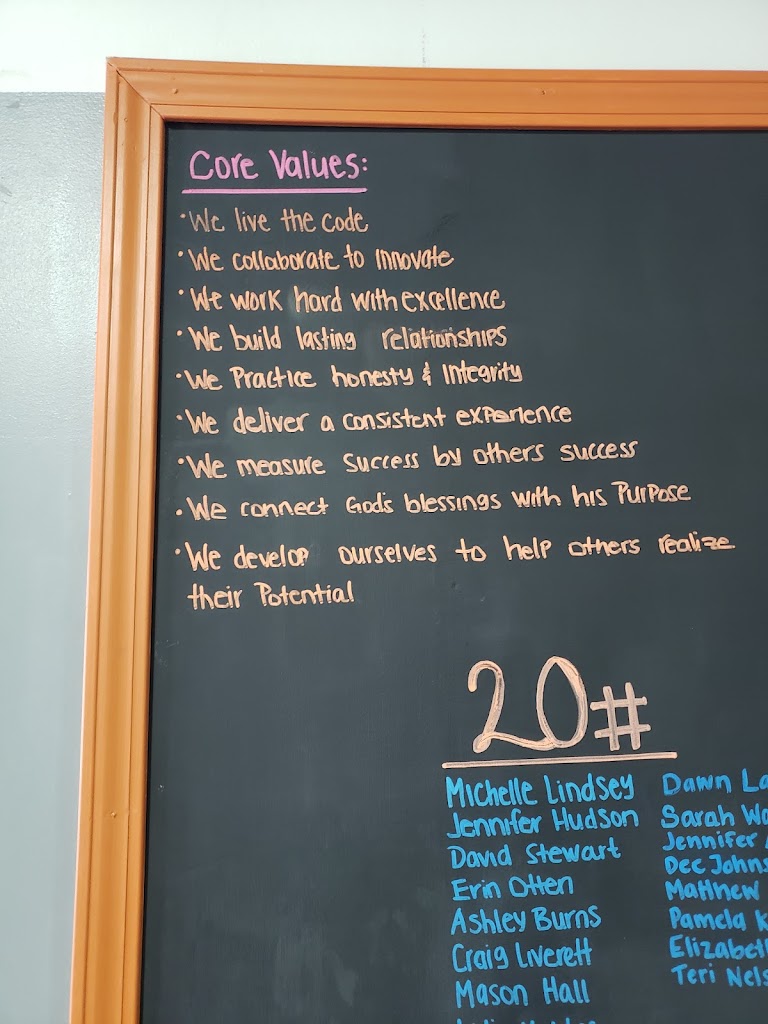 Core Values:
• We live the code
• We collaborate to Innovate
• We work hard with excellence
• We build lasting relationships
• We Practice honesty & Integrity
• We deliver a consistent experience
• We measure success by others success
• We connect God's blessings with his Purpose
• We develop ourselves to help others realize
their Potential
20#
Michelle Lindsey
Jennifer Hudson
David Stewart
Erin Otten
Ashley Burns
Craig Liverett
Mason Hall
Dawn
Sarah
Jennifer
Dee
Matthew
Pamela
Teri